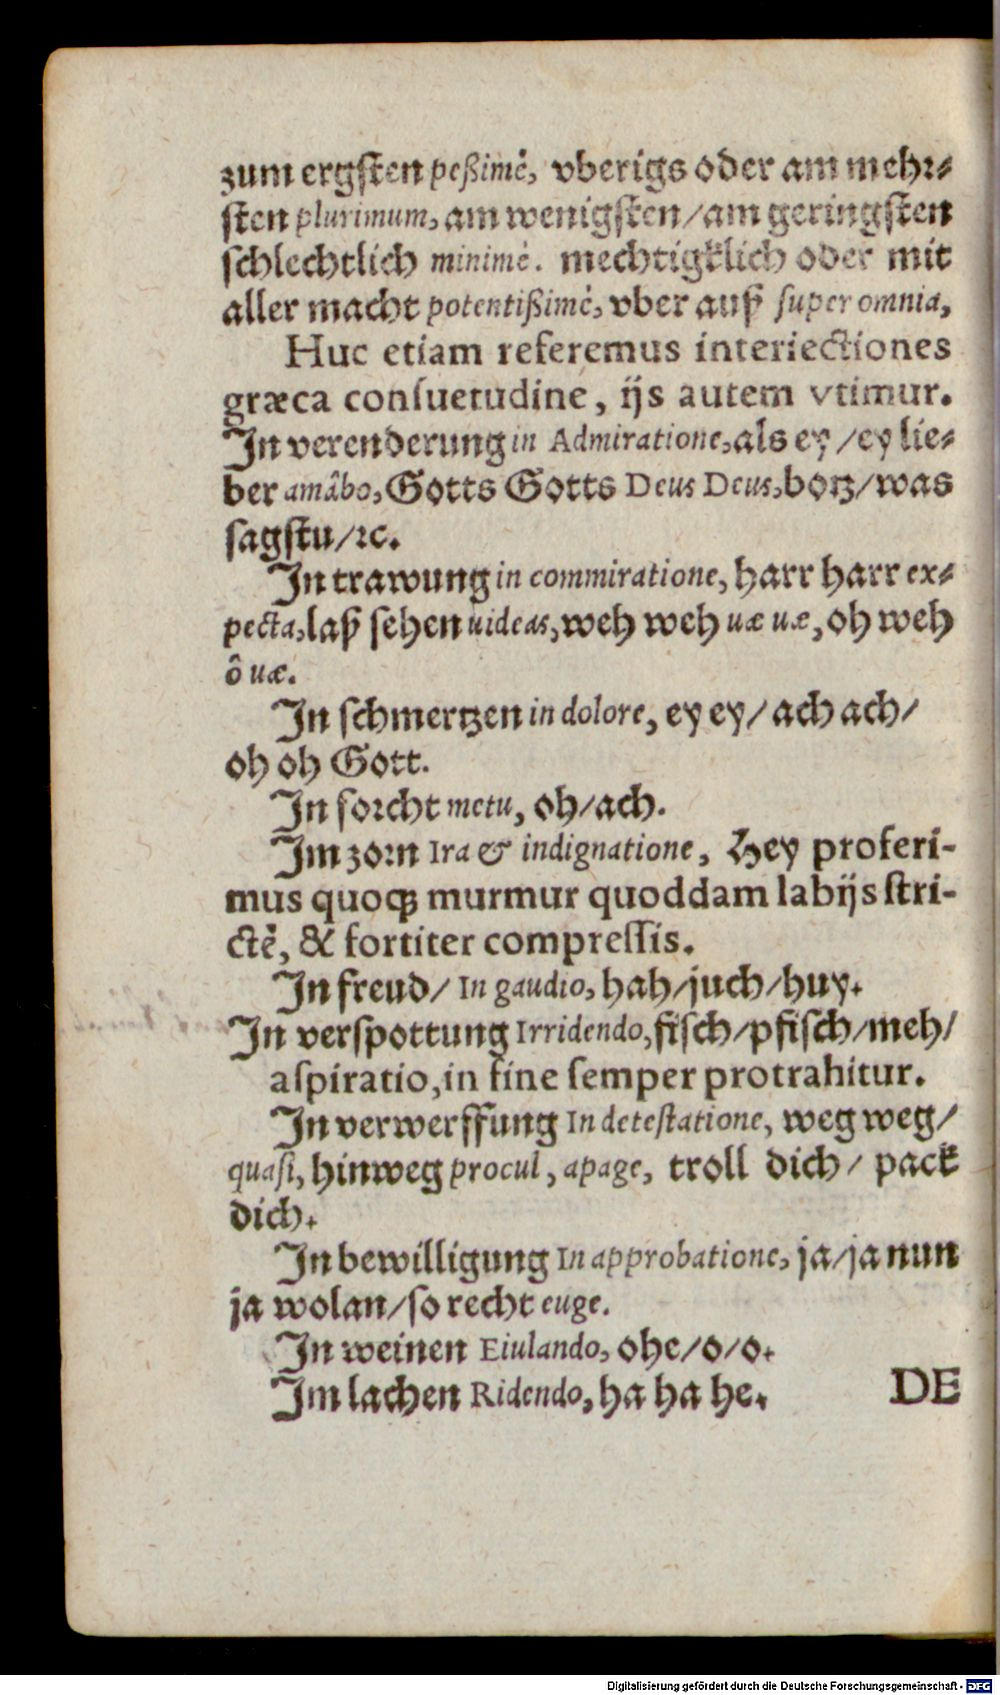 zum ergſten peßimè, vberigs oder am mehr⸗
ſten plurimum, am wenigſten/am geringſten
ſchlechtlich minimè. mechtigklich oder mit
aller macht potentißimè, vber auß ſuper omnia,
Huc etiam referemus interiectiones
græca conſuetudine, ijs autem vtimur.
In verenderung in Admiratione, als ey/ey lie⸗
ber amâbo, Gotts Gotts Deus Deus, botz/was
ſagſtu/ꝛc.
In trawung in commiratione, harr harr ex⸗
pecta, laß ſehen uideas, weh weh uæ uæ, oh weh
ô uæ.
In ſchmertzen in dolore, ey ey/ ach ach/
oh oh Gott.
In forcht metu, oh/ach.
Im zorn Ira & indignatione, Hey proferi-
mus quoq; murmur quoddam labijs ſtri-
ctè, & fortiter compreſſis.
In freud/ In gaudio, hah/juch/huy.
In verſpottung Irridendo, fiſch/pfiſch/meh/
aſpiratio, in fine ſemper protrahitur.
In verwerffung In deteſtatione, weg weg/
quaſi, hinweg procul, apage, troll dich/ pack
dich.
In bewilligung In approbatione, ja/ja nun
ja wolan/ſo recht euge.
In weinen Eiulando, ohe/o/o.
Im lachen Ridendo, ha ha he.
DE
Digitalisierung gefördert durch die Deutsche Forschungsgemeinschaft - DFG